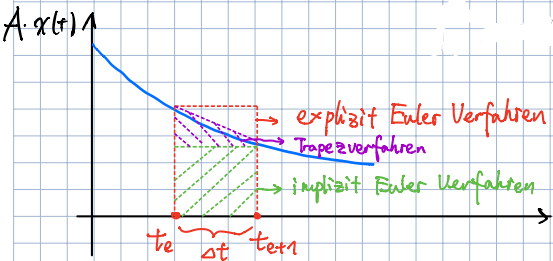 A·x(t)
explizit Euler Verfahren
Trapezverfahren
implizit Euler Verfahren
te Δt te+1